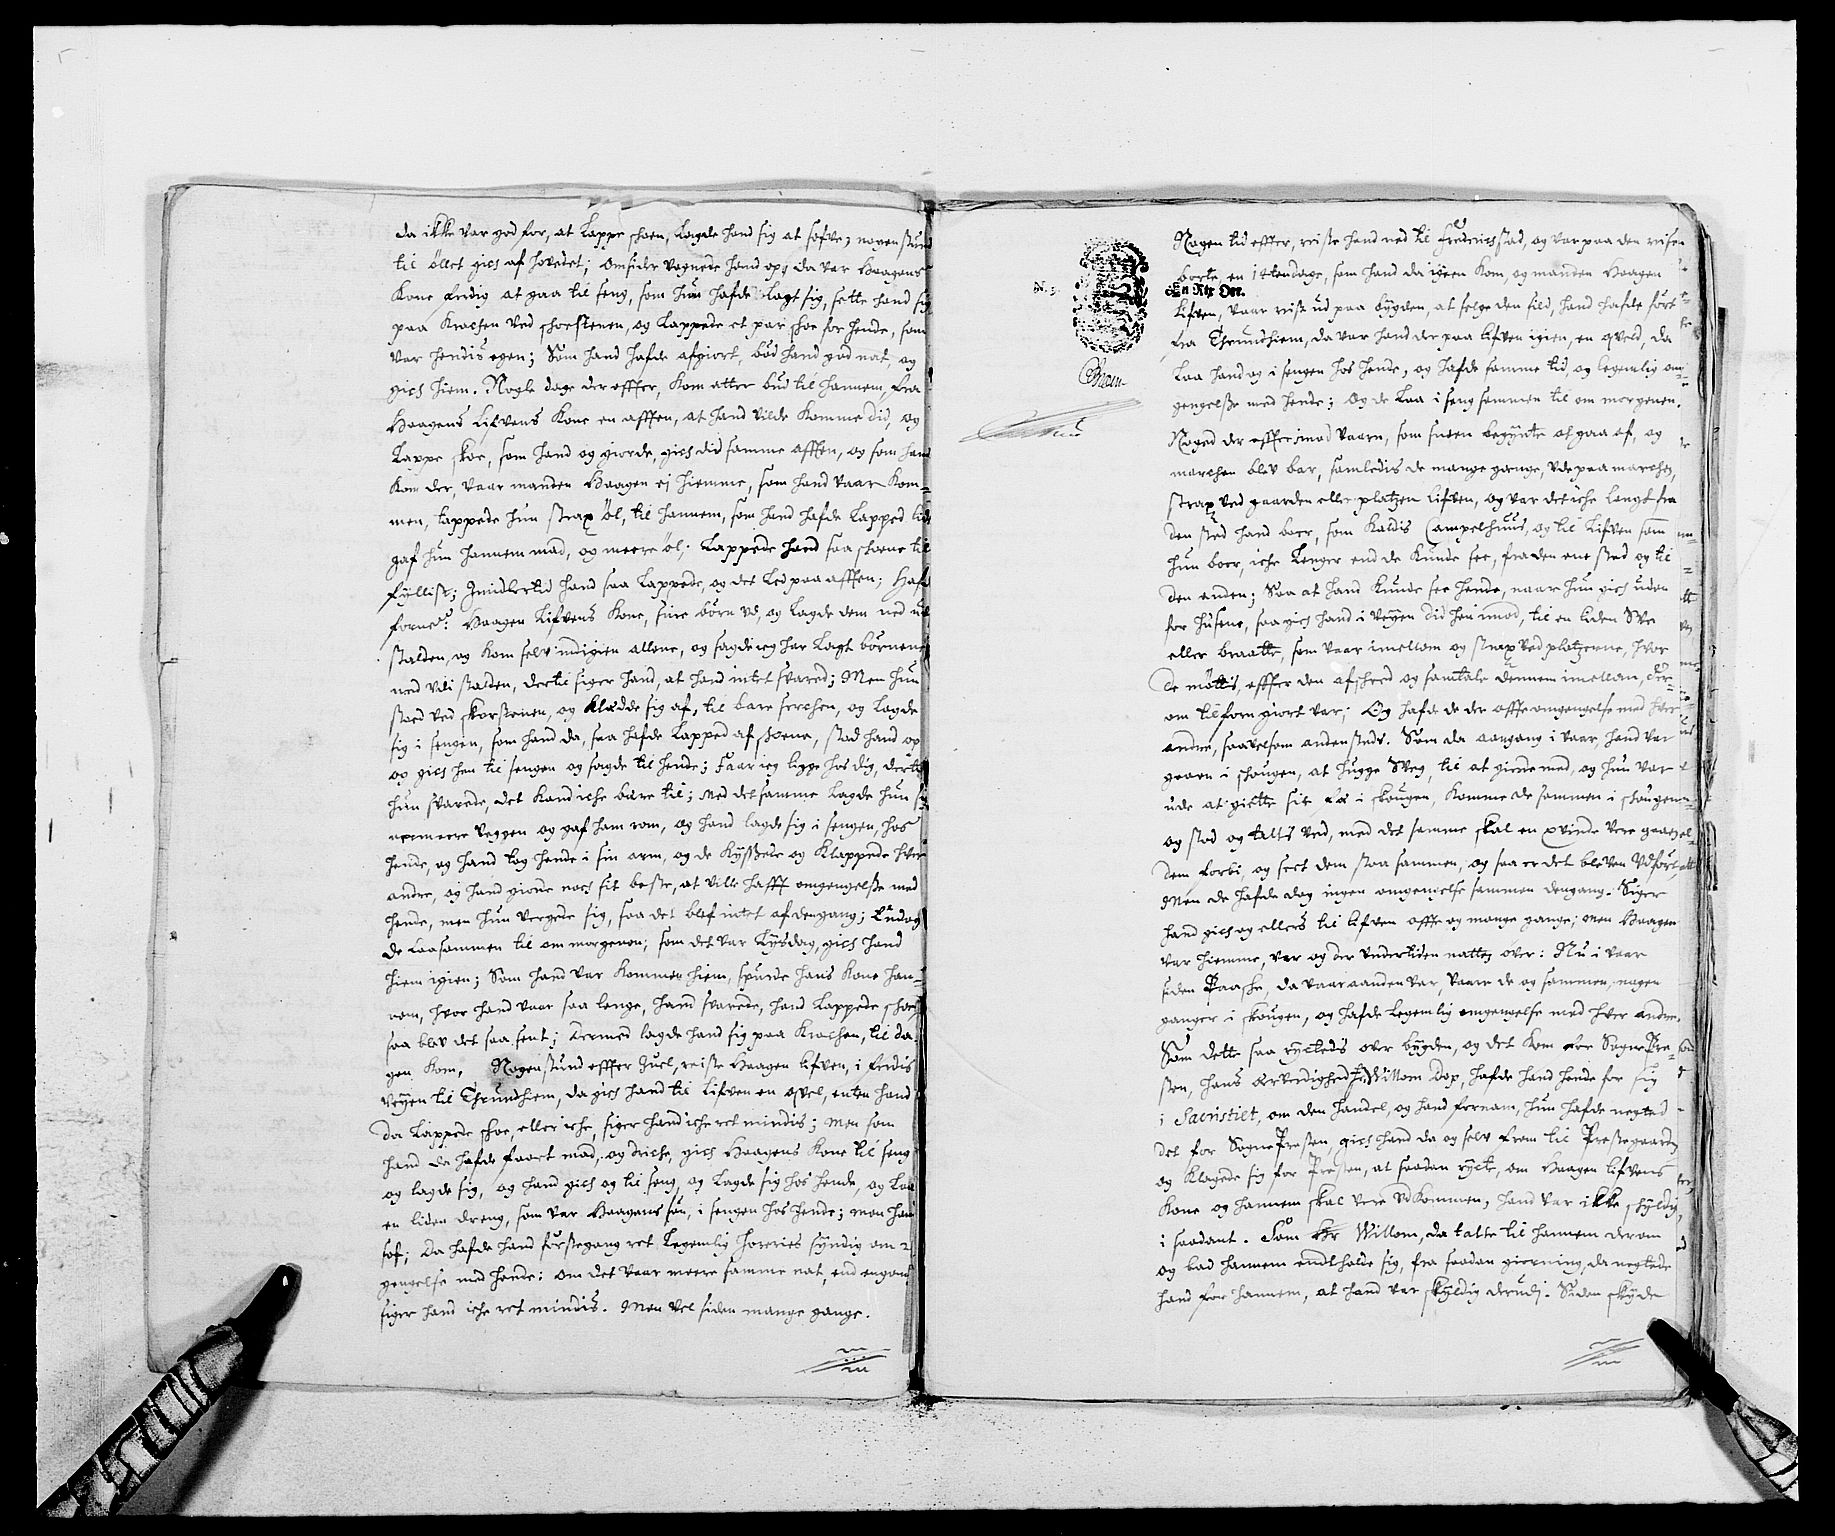 da ikke var god for, at Lappe schoen, Lagde hand sig at sofve; nogen stund
til öllet gick af hovedet; Omsider vognede hand op; da var Haagens
Kone ferdig at gaa til seng, som hun hafde Lagt sig, sette hand sig
paa Kracken ved schorstenen, og Lappede et par schoe for hende, som
var hendis egen; Som hand hafde afgiort, böd hand god nat, og
gick hiem. Nogle dage der effter, Kom atter bud til hannem, fra
Haagens Lifvens Kone en afften, at hand vilde Komme did, og
Lappe skoe, som hand og giorde, gick did samme afften, og som hand
Kom der, vaar manden Haagen ej hiemme, som hand vaar Kom-
men, tappede hun strax öl, til hannem, som hand hafde Lapped lidt
gaf hun hannem mad, og meere öl; Lappede hand saa schoene til
fylliste; Jmidlertid hand saa Lappede, og det Led paa afften; Hafde
forne: Haagen Lifvens Kone, sine börn vd, og Lagde dem ned udi
stalden, og Kom selv indigien allene, og sagde ieg har Lagt börnene
ned vdi stalden, dertil siger hand, at hand intet svared; Men hun
stoed ved skorstenen, og Klædde sig af, til bare sercken, og Lagde
sig i sengen, som hand da, saa hafde Lapped af schoene, stod hand op
og gick hen til sengen og sagde til hende; Faar ieg ligge hos dig, dertil
hun svarede, det Kand icke bære til; med det samme Lagde hun sig
nermeere veggen og gaf ham rom, og hand lagde sig i sengen, hos
hende, og hand tog hende i sin arm, og de Kyssede og Klappede hver
andre, og hand giorde nock sit beste, at ville hafft omgengelsse med
hende, men hun vergede sig, saa det blef intet af dengang; Endog
de Laa sammen til om morgenen; som det var Lys dag, gick hand
hiem igien; Som hand var Kommen hiem, spurde hans Kone han-
nem, hvor hand vaar saa lenge, hand svarede, hand Lappede schoe
saa blev det saa sent; dermed lagde hand sig paa Kracken, til da-
gen Kom. Nogen stund effter Juel, reiste Haagen Lifven, i ferdis
veyen til Thrundhiem, da gick hand til Lifven en qvel, enten hand
da Lappede schoe, eller icke, siger hand icke ret mindis; men som
hand da hafde faaet mad, og dricke, gick Haagens Kone til seng
og lagde sig, og hand gick og til seng, og Lagde sig hos hende, og Laa
en liden dreng, som var Haagens sön, i sengen hos hende; men hand
sof; Da hafde hand förste gang ret Legemlig horeries syndig om-
gengelse med hende; om det vaar meere samme nat, end engang
siger hand icke ret mindis. Men vel siden mange gange.
N.
En Rix Ort.
Nogen tid effter, reiste hand ned til Fredrickstad, og var paa den reisen
borte, en 14ten dage, som hand da igien Kom, og manden Haagen
Lifven, vaar reist ud paa bygden, at selge den sild, hand hafde fört
fra Thrundhiem, da var hand der paa Lifven igien, en qveld, da
Laa hand og i sengen hos hende, og hafde samme tid, og legemlig om-
gengelsse med hende; Og de Laa i seng sammen til om morgenen.
Noged der effter imod vaaren, som sneen begynte at gaa af, og
marcken blev bar, samledis de mange gange, vde paa marcken,
strax ved gaarden eller platzen Lifven, og var det icke langt fra
den sted hand boer, som Kaldis Campelhuus, og til Lifven som
hun boer, icke Lenger end de Kunde see, fra den ene sted og til
den anden; Saa at hand Kunde see hende, naar hun gick uden
for husene, saa gick hand i veyen did hen imod, til en liden Sve
eller braatte, som vaar imellom og strax ved platzerne, hvor
de mötte, effter den afscheed og samtale dennem imellom, der-
om tilforn giort var; Og hafde de der offte omgengelse med hver
andre, saavelsom andensteds. Som da aangang i vaar hand var
gaaen i schougen, at hugge Sveg, til at gierde med, og hun var
ude at giette sit Fæ i skougen, Komme de sammen i schougen
og stod og talte ved, med det samme skal en qvinde vere gaaen
dem forbi, og seet dem staa sammen, og saa er det bleven vdfört
Men de hafde dog ingen omgengelse sammen dengang. Siger
hand gick og ellers til Lifven offte og mange gange; men Haagen
var hiemme, var og der vnderliden natten over: Nu i vaar
siden Paaske, da vaar aanden var, vaare de og sammen, nogen
ganger i skougen, og hafde Legemlig omgengelse med hver andre.
Som dette saa ryctedis over bygden, og det Kom for Sogne Pre-
sten, hans ærverdighed Hr Willom Dop, hafde hand hende for sig
i Sacristiet, om den handel, og hand fornam, hun hafde negted
det for Sogne Presten, gick hand da og selv frem til Prestegaarden
og Klagede sig for Presten, at saadan rycte, om Haagen Lifvens
Kone og hannem skal vere vd Kommen, hand var ikke schyldig
i saadant. Som Hr Willom, da talte til hannem derom
og bad hannem endtholde sig, fra saadan gierning, da negtede
hand for hannem, at hand var skyldig derudj. Siden skyde